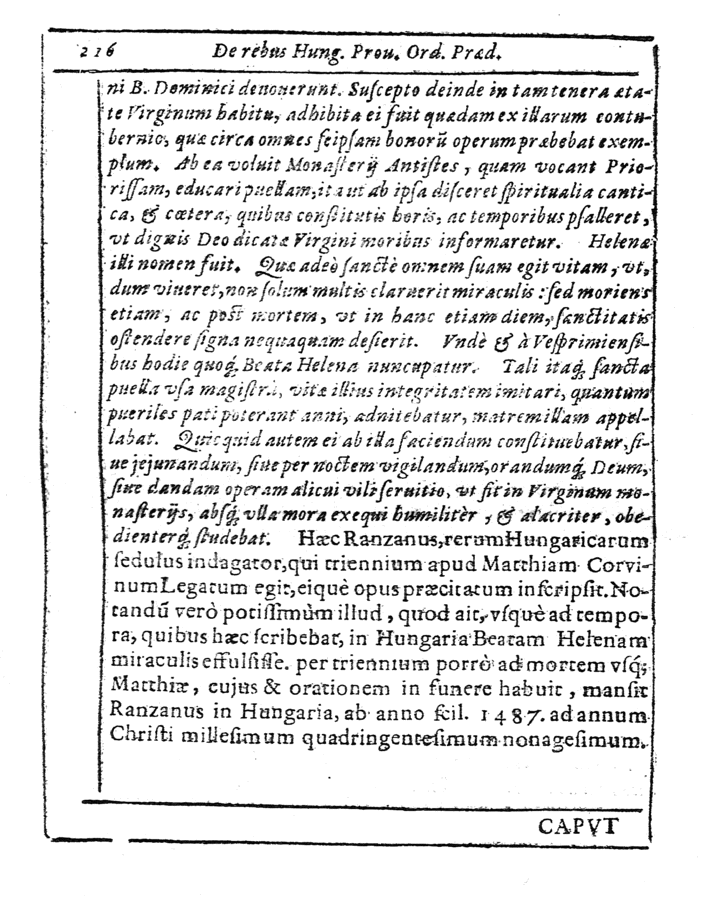 216 De rebus Hung. Prou. Ord. Præd.
ni B. Dominici deuouerunt. Suſcepto deinde in tam tenera æta-
te Virginum habitu, adhibita ei fuit quædam ex illarum contu-
bernio, quæ circa omnes ſeipſam bonorũ operum præbebat exem-
plum. Ab ea voluit Monaſterij Antiſtes, quam vocant Prio-
riſſam, educari puellam, ita ut ab ipſa diſceret ſpiritualia canti-
ca, & cætera, quibus conſtitutis horis, ac temporibus pſalleret,
vt dignis Deo dicatæ Virgini moribus informaretur. Helenæ
illi nomen fuit. Quæ adeò ſanctè omnem ſuam egit vitam, vt,
dum viueret, non ſolum multis claruerit miraculis: ſed moriens
etiam, ac poſt mortem, vt in hanc etiam diem, ſanctitatis
oſtendere ſigna nequaquam deſierit. Vndè & à Veſprimienſi-
bus hodie quoq́; Beata Helena nuncupatur. Tali itaq́; ſancta
puella vſa magiſtrâ, vitæ illius integritatem imitari, quantum
pueriles pati poterant anni, adnitebatur, matrem illam appel-
labat. Quicquid autem ei ab illa faciendum conſtituebatur, ſi-
ue jejunandum, ſiue per noctem vigilandum, orandumq́; Deum,
ſiue dandam operam alicui vili ſeruitio, vt fit in Virginum mo-
naſterijs, abſq́; vlla mora exequi humilitèr, & alacriter, obe-
dienterq́; ſtudebat. Hæc Ranzanus, rerum Hungaricarum
ſedulus indagator, qui triennium apud Matthiam Corvi-
num Legatum egit, eique opus præcitatum inſcripſit. No-
tandũ verò potiſſimùm illud, quod ait, vſquè ad tempo-
ra, quibus hæc ſcribebat, in Hungaria Beatam Helenam
miraculis effulſiſſe. per triennium porrò ad mortem vſq́;
Matthiæ, cujus & orationem in funere habuit, manſit
Ranzanus in Hungaria, ab anno ſcil. 1487. ad annum
Chriſti milleſimum quadringenteſimum nonageſimum.
CAPVT